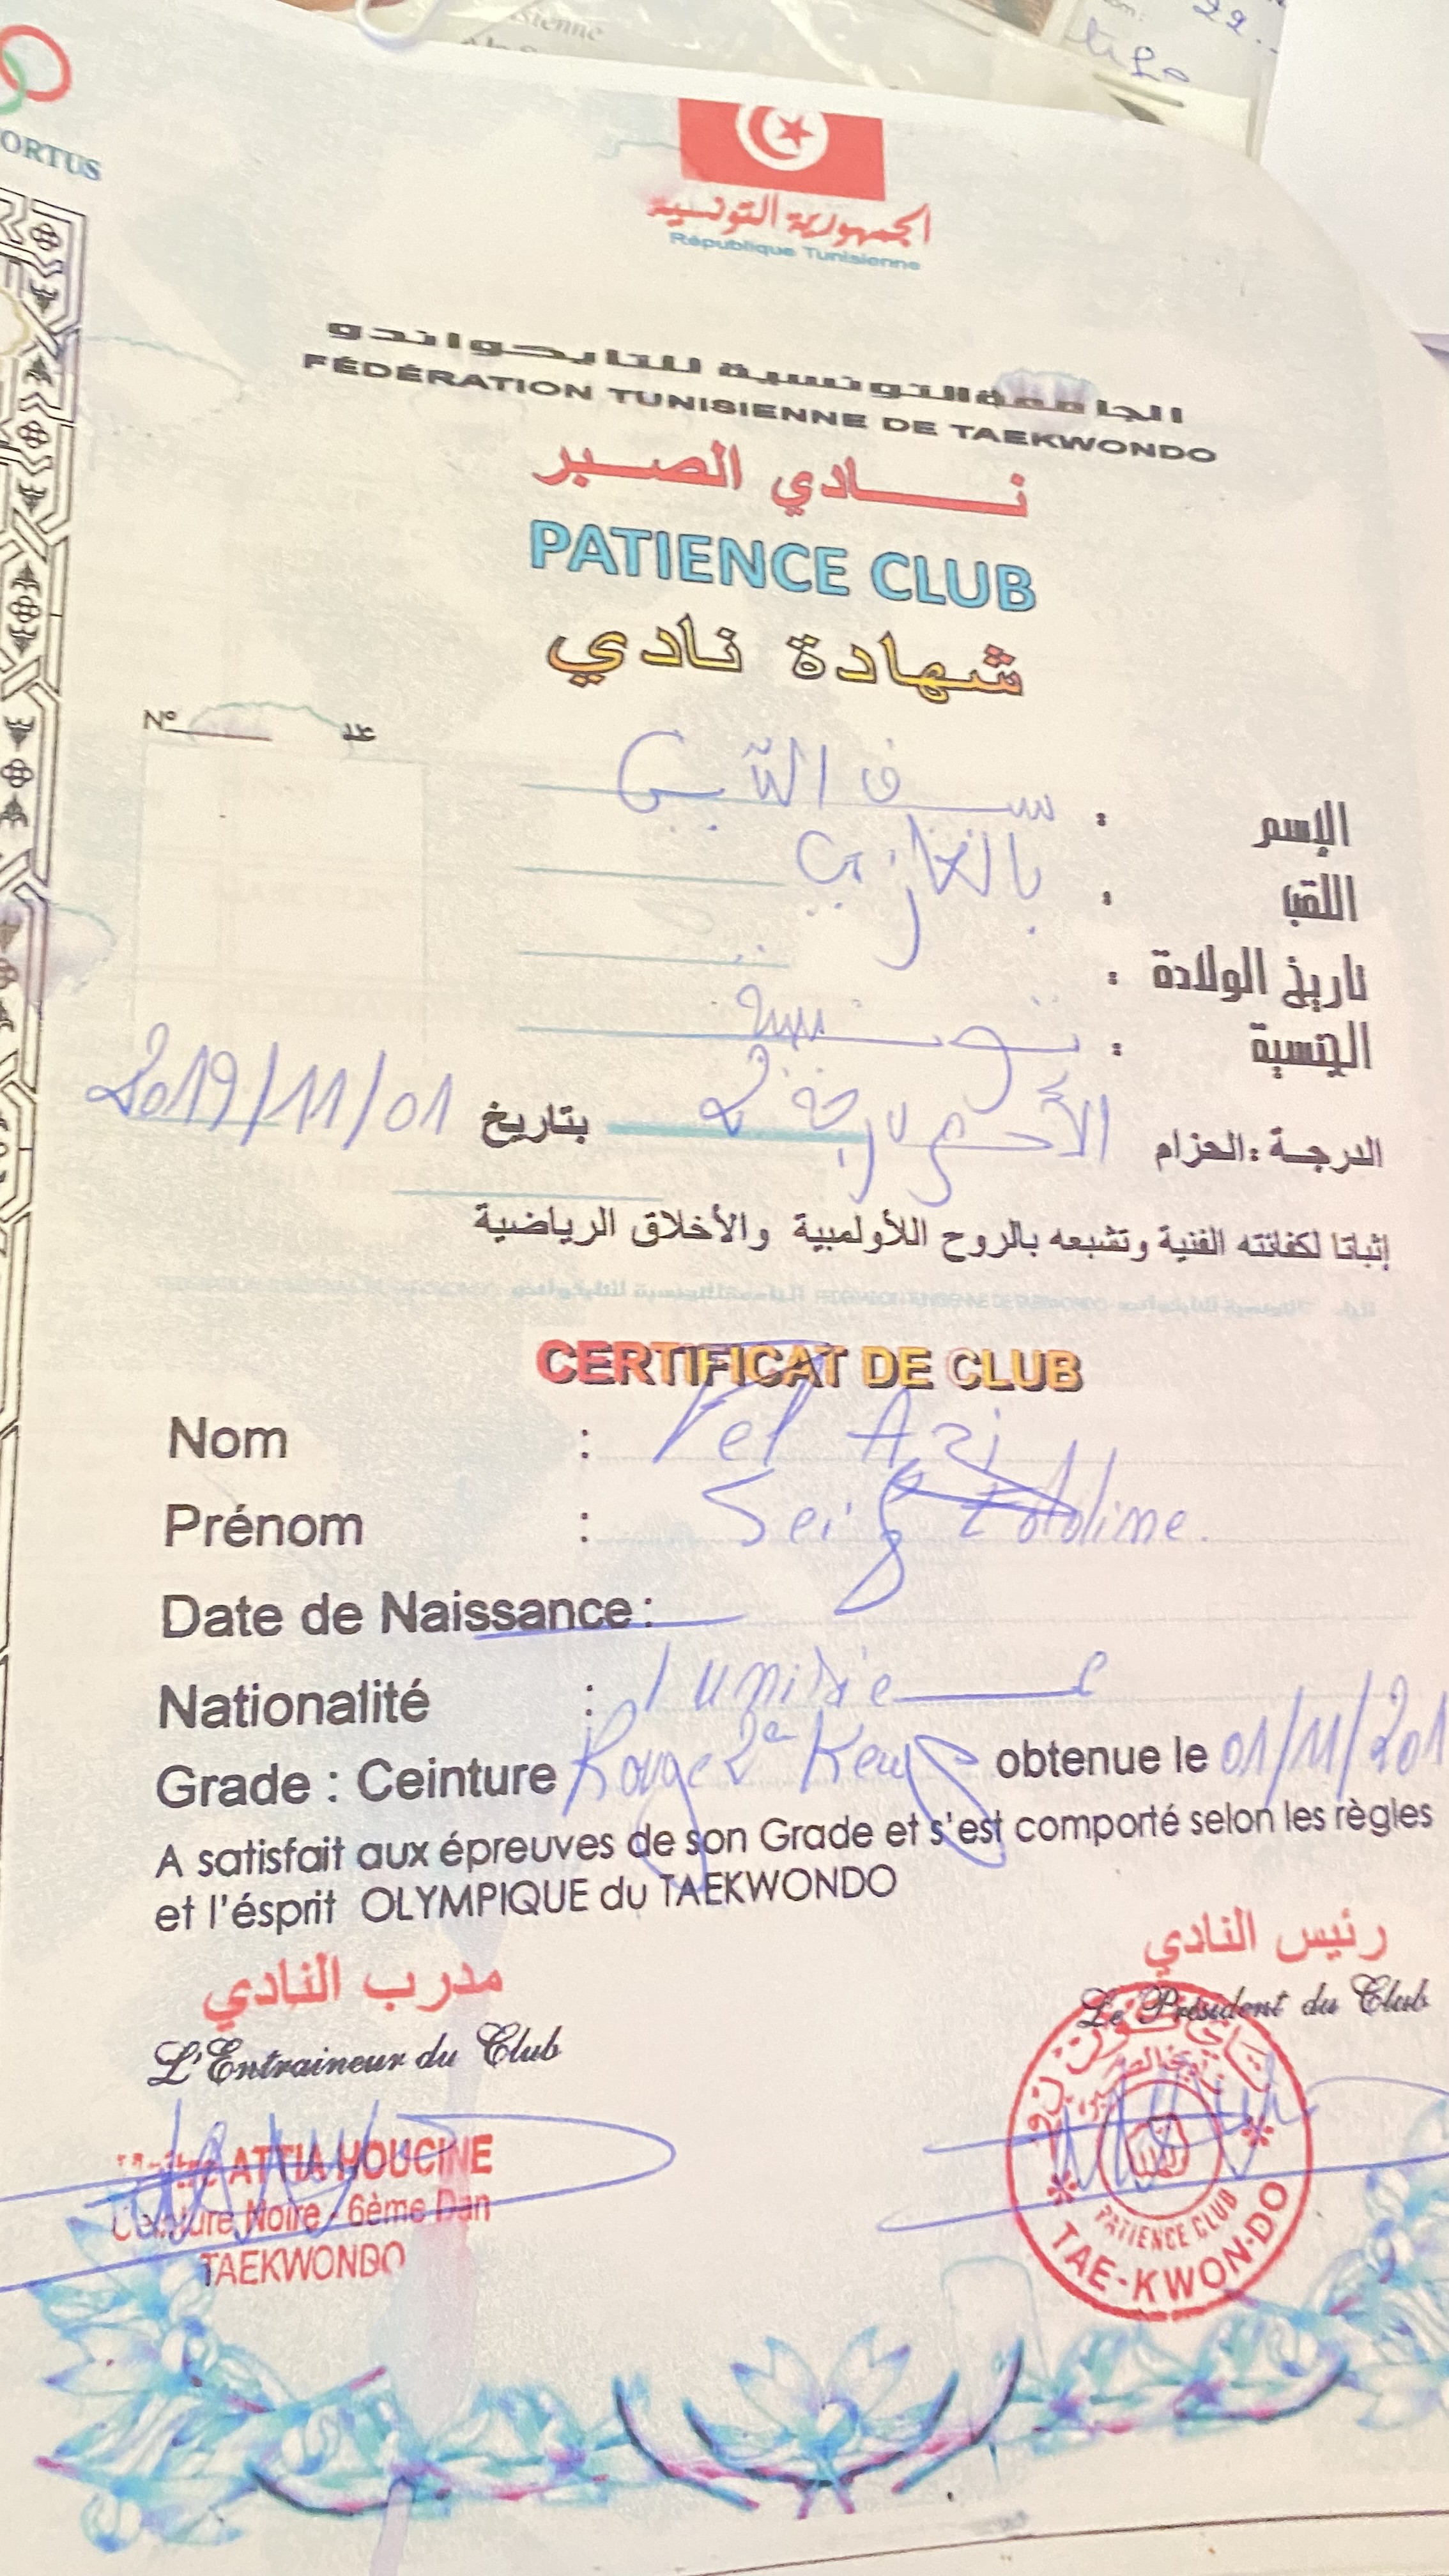 ORTUS
الجمهورية التونسية
République Tunisienne
الجامعة التونسية للتايكواندو
FÉDÉRATION TUNISIENNE DE TAEKWONDO
نادي الصبر
PATIENCE CLUB
شهادة نادي
N° عدد
الإسم : سيف الدين
اللقب :
تاريخ الولادة :
الجنسية : تونسية
الدرجة : الحزام الأحمر درجة 2 بتاريخ 2019/11/01
إثباتا لكفائته الفنية وتشبعه بالروح اللأولمبية والأخلاق الرياضية
CERTIFICAT DE CLUB
Nom :
Prénom : Seif Eddine
Date de Naissance :
Nationalité : Tunisie
Grade : Ceinture Rouge 2e Keup obtenue le 01/11/201
A satisfait aux épreuves de son Grade et s'est comporté selon les règles
et l'ésprit OLYMPIQUE du TAEKWONDO
رئيس النادي
Le Président du Club
مدرب النادي
L'Entraineur du Club
Maître ATTIA HOUCINE
Ceinture Noire - 6ème Dan
TAEKWONDO
PATIENCE CLUB
TAE-KWON-DO